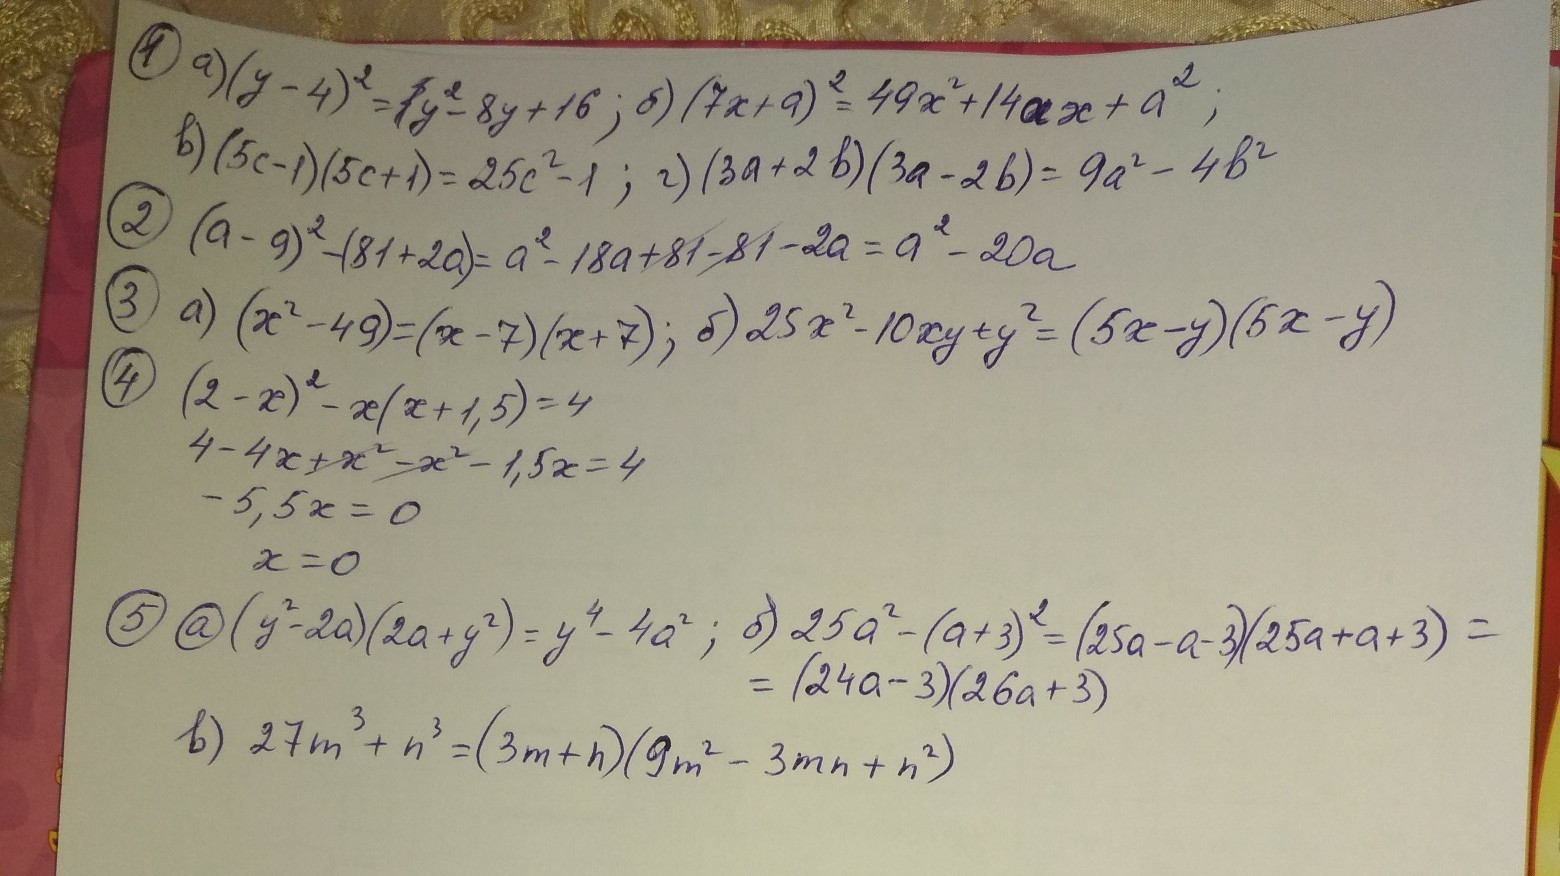 ① а) (y - 4)² = y² - 8y + 16; б) (7x + a)² = 49x² + 14ax + a²;
в) (5c-1)(5c+1) = 25c² - 1; г) (3a + 2b)(3a - 2b) = 9a² - 4b²
② (a - 9)² - (81 + 2a) = a² - 18a + 81 - 81 - 2a = a² - 20a
③ а) (x² - 49) = (x - 7)(x + 7); б) 25x² - 10xy + y² = (5x - y)(5x - y)
④ (2 - x)² - x(x + 1,5) = 4
4 - 4x + x² - x² - 1,5x = 4
- 5,5x = 0
x = 0
⑤ а (y² - 2a)(2a + y²) = y⁴ - 4a²; б) 25a² - (a + 3)² = (25a - a - 3)(25a + a + 3) =
= (24a - 3)(26a + 3)
в) 27m³ + n³ = (3m + n)(9m² - 3mn + n²)